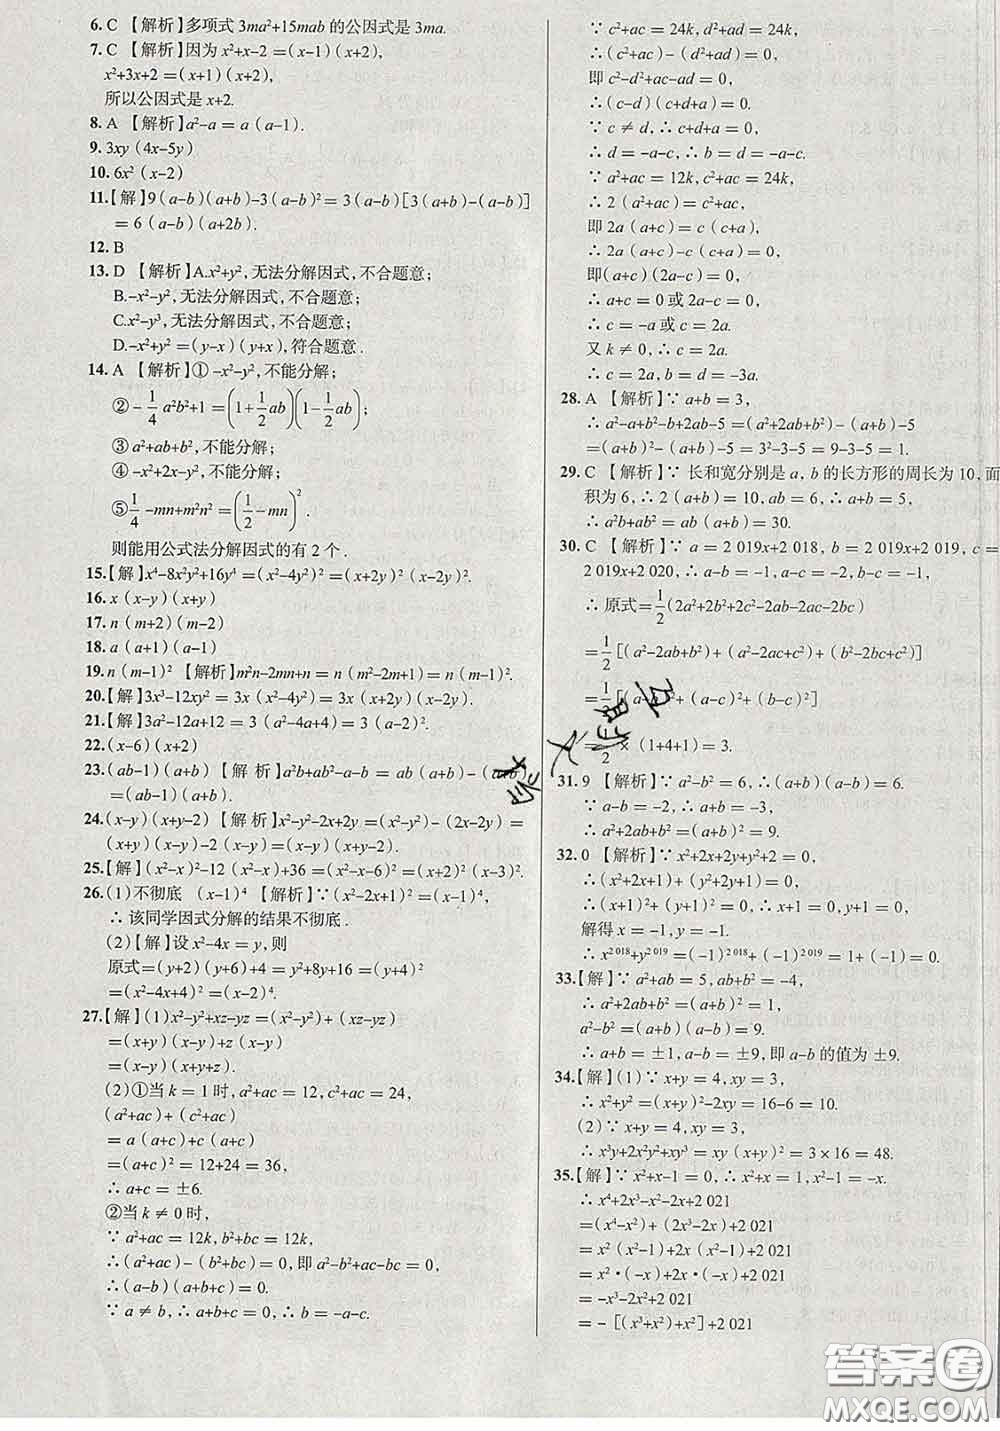 6. C 【解析】多项式 3ma²+15mab 的公因式是 3ma.
7. C 【解析】因为 x²+x-2 =(x-1)(x+2),
x²+3x+2 =(x+1)(x+2),
所以公因式是 x+2.
8. A 【解析】a²-a = a(a-1).
9. 3xy(4x-5y)
10. 6x²(x-2)
11.【解】9(a-b)(a+b)-3(a-b)² = 3(a-b)[3(a+b)-(a-b)]
= 6(a-b)(a+2b).
12. B
13. D 【解析】A.x²+y², 无法分解因式, 不合题意;
B.-x²-y², 无法分解因式, 不合题意;
C.x²-y³, 无法分解因式, 不合题意;
D.-x²+y² =(y-x)(y+x), 符合题意.
14. A 【解析】① -x²-y², 不能分解;
②-1/4 a²b²+1 =(1+1/2 ab)(1-1/2 ab);
③ a²+ab+b², 不能分解;
④ -x²+2x-y², 不能分解;
⑤1/4-mn+m²n² =(1/2-mn)².
则能用公式法分解因式的有 2 个.
15.【解】x⁴-8x²y²+16y⁴ =(x²-4y²)² =(x+2y)²(x-2y)².
16. x(x-y)(x+y)
17. n(m+2)(m-2)
18. a(a+1)(a-1)
19. n(m-1)² 【解析】m²n-2mn+n = n(m²-2m+1)= n(m-1)².
20.【解】3x³-12xy² = 3x(x²-4y²)= 3x(x+2y)(x-2y).
21.【解】3a²-12a+12 = 3(a²-4a+4)= 3(a-2)².
22.(x-6)(x+2)
23.(ab-1)(a+b)【解析】a²b+ab²-a-b = ab(a+b)-(a+b)
=(ab-1)(a+b).
24.(x-y)(x+y-2)【解析】x²-y²-2x+2y =(x²-y²)-(2x-2y)=
(x+y)(x-y)-2(x-y)=(x-y)(x+y-2).
25.【解】(x²-x)²-12(x²-x)+36 =(x²-x-6)² =(x+2)²(x-3)².
26.(1)不彻底 (x-1)⁴ 【解析】∵(x²-2x+1)² =(x-1)⁴,
∴ 该同学因式分解的结果不彻底.
(2)【解】设 x²-4x = y, 则
原式 =(y+2)(y+6)+4 = y²+8y+16 =(y+4)²
=(x²-4x+4)² =(x-2)⁴.
27.【解】(1)x²-y²+xz-yz =(x²-y²)+(xz-yz)
=(x+y)(x-y)+z(x-y)
=(x-y)(x+y+z).
(2)①当 k = 1 时, a²+ac = 12, c²+ac = 24,
(a²+ac)+(c²+ac)
= a(a+c)+c(a+c)
=(a+c)² = 12+24 = 36,
∴ a+c = ±6.
②当 k ≠ 0 时,
∵ a²+ac = 12k, b²+bc = 12k,
∴(a²+ac)-(b²+bc)= 0, 即 a²-b²+ac-bc = 0,
∴(a-b)(a+b+c)= 0.
∵ a ≠ b, ∴ a+b+c = 0, ∴ b = -a-c.
∵ c²+ac = 24k, d²+ad = 24k,
∴(c²+ac)-(d²+ad)= 0,
即 c²-d²+ac-ad = 0,
∴(c-d)(c+d+a)= 0.
∵ c ≠ d, ∴ c+d+a = 0,
∴ d = -a-c, ∴ b = d = -a-c.
∵ a²+ac = 12k, c²+ac = 24k,
∴ 2(a²+ac)= c²+ac,
即 2a(a+c)= c(c+a),
∴ 2a(a+c)-c(a+c)= 0,
即(a+c)(2a-c)= 0,
∴ a+c = 0 或 2a-c = 0,
∴ c = -a 或 c = 2a.
又 k ≠ 0, ∴ c = 2a.
∴ c = 2a, b = d = -3a.
28. A 【解析】∵ a+b = 3,
∴ a²-a+b²-b+2ab-5 =(a²+2ab+b²)-(a+b)-5
=(a+b)²-(a+b)-5 = 3²-3-5 = 9-3-5 = 1.
29. C 【解析】∵ 长和宽分别是 a, b 的长方形的周长为 10, 面
积为 6, ∴ 2(a+b)= 10, ab = 6, ∴ a+b = 5,
∴ a²b+ab² = ab(a+b)= 30.
30. C 【解析】∵ a = 2 019x+2 018, b = 2 019x+2 019, c =
2 019x+2 020, ∴ a-b = -1, a-c = -2, b-c = -1,
∴ 原式=1/2(2a²+2b²+2c²-2ab-2ac-2bc)
=1/2[(a²-2ab+b²)+(a²-2ac+c²)+(b²-2bc+c²)]
=1/2[(a-b)²+(a-c)²+(b-c)²]
=1/2×(1+4+1)= 3.
31. 9 【解析】∵ a²-b² = 6, ∴(a+b)(a-b)= 6.
∵ a-b = -2, ∴ a+b = -3,
∴ a²+2ab+b² =(a+b)² = 9.
32. 0 【解析】∵ x²+2x+2y+y²+2 = 0,
∴(x²+2x+1)+(y²+2y+1)= 0,
∴(x+1)²+(y+1)² = 0,
解得 x = -1, y = -1.
∴ x²⁰¹⁸+y²⁰¹⁹ =(-1)²⁰¹⁸+(-1)²⁰¹⁹ = 1+(-1)= 0.
33.【解】∵ a²+ab = 5, ab+b² = -4,
∴ a²+2ab+b² =(a+b)² = 1,
a²-b² =(a+b)(a-b)= 9.
∴ a+b = ±1, a-b = ±9, 即 a-b 的值为 ±9.
34.【解】(1)∵ x+y = 4, xy = 3,
∴ x²+y² =(x+y)²-2xy = 16-6 = 10.
(2)∵ x+y = 4, xy = 3,
∴ x³y+2x²y²+xy³ = xy(x+y)² = 3×16 = 48.
35.【解】∵ x²+x-1 = 0, ∴ x²+x = 1, x²-1 = -x.
∴ x⁴+2x³-x²-2x+2 021
=(x⁴-x²)+(2x³-2x)+2 021
= x²(x²-1)+2x(x²-1)+2 021
= x²·(-x)+2x·(-x)+2 021
= -x³-2x²+2 021
= -[(x³+x²)+x²]+2 021
答案圈
MXQE.COM